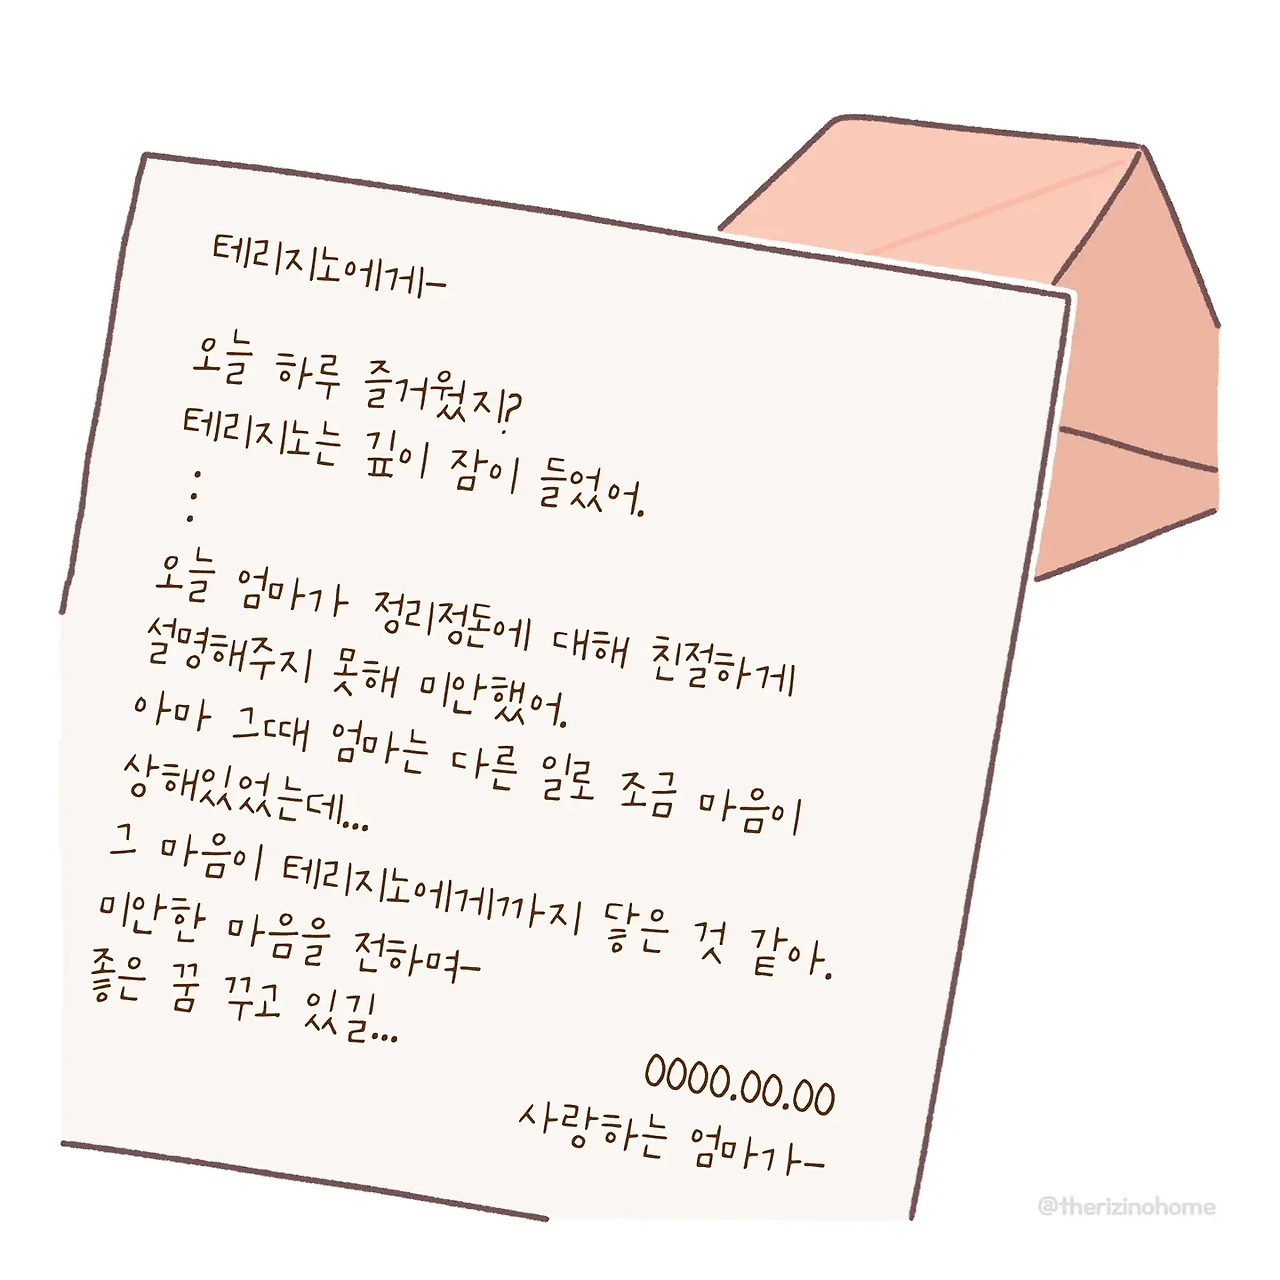 테리지노에게-
오늘 하루 즐거웠지?
테리지노는 깊이 잠이 들었어.
⋮
오늘 엄마가 정리정돈에 대해 친절하게
설명해주지 못해 미안했어.
아마 그때 엄마는 다른 일로 조금 마음이
상해있었는데...
그 마음이 테리지노에게까지 닿은 것 같아.
미안한 마음을 전하며-
좋은 꿈 꾸고 있길...
0000.00.00
사랑하는 엄마가-
@therizinohome